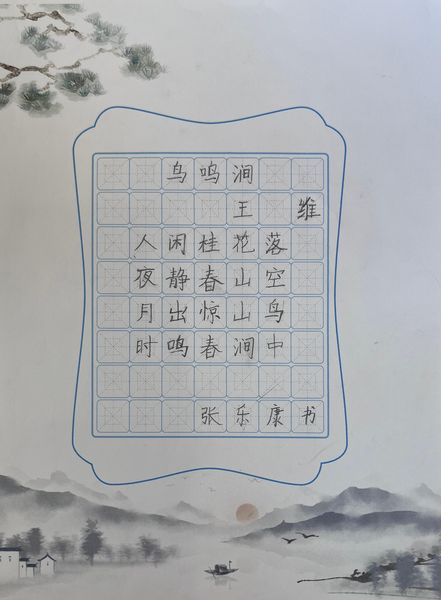 鸟鸣涧
王维
人闲桂花落
夜静春山空
月出惊山鸟
时鸣春涧中
张乐康书